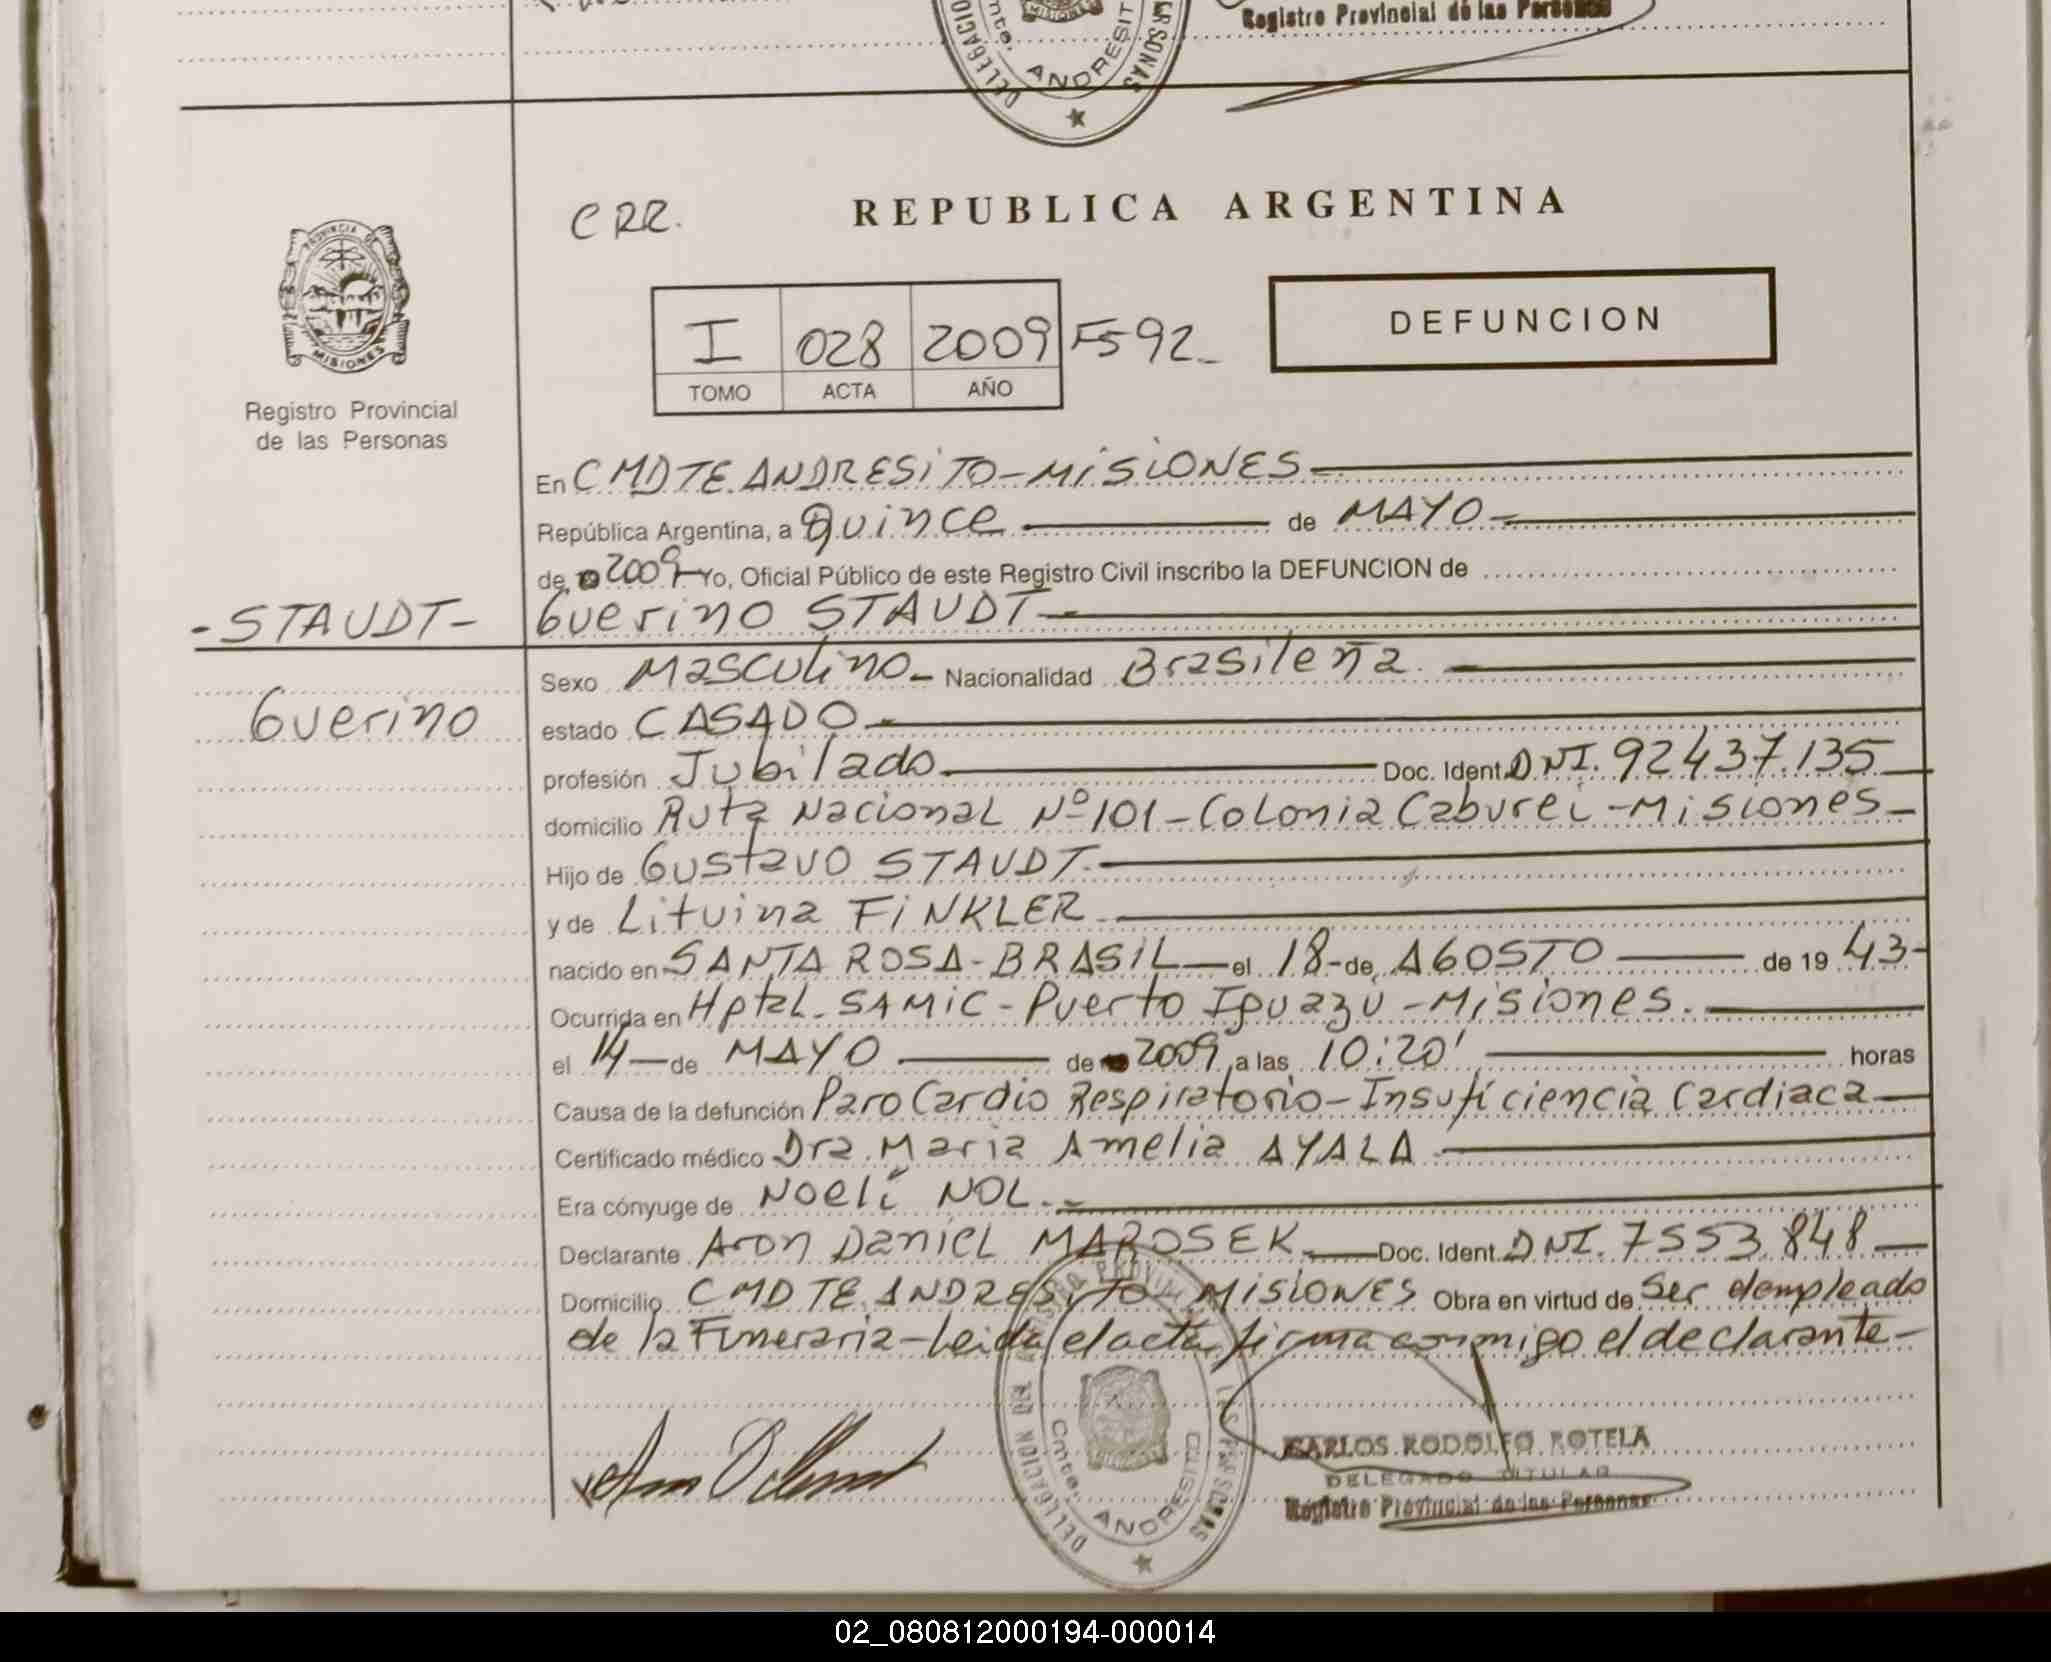 DELEGACIO
MISIONES
Cmte. ANDRESIT
RSONAS
Registro Provincial de las Personas
CRR.
REPUBLICA ARGENTINA
PROVINCIA DE
MISIONES
I 028 2009 F592_
TOMO ACTA AÑO
DEFUNCION
Registro Provincial
de las Personas
En CMDTE ANDRESITO-MISIONES
República Argentina, a Quince de MAYO
de 2009 Yo, Oficial Público de este Registro Civil inscribo la DEFUNCION de
-STAUDT- Guerino STAUDT
Sexo Masculino Nacionalidad Brasileña
Guerino
estado CASADO
profesión Jubilado Doc. Ident. DNI. 92437.135
domicilio Ruta Nacional Nº 101-Colonia Caburei-Misiones
Hijo de Gustavo STAUDT
y de Lituina FINKLER
nacido en SANTA ROSA-BRASIL el 18-de AGOSTO de 1943-
Ocurrida en Hptal. SAMIC-Puerto Iguazú-Misiones.
el 14 de MAYO de 2009 a las 10:20' horas
Causa de la defunción Paro Cardio Respiratorio-Insuficiencia Cardiaca
Certificado médico Dra. Maria Amelia AYALA
Era cónyuge de Noelí NOL.
Declarante Aron Daniel MAROSEK Doc. Ident. DNI. 7553.848
Domicilio CMDTE ANDRESITO-MISIONES Obra en virtud de Ser empleado
de la Funeraria-Leida el acta, firma conmigo el declarante-
DELEGACION Cmte. ANDRESITO
CARLOS RODOLFO ROTELA
DELEGADO TITULAR
Registro Provincial de las Personas
02_080812000194-000014